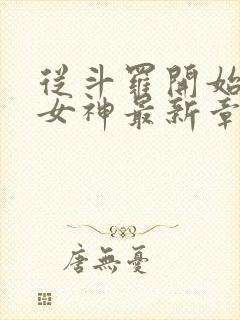 從斗羅開始
女神最新章
唐無憂